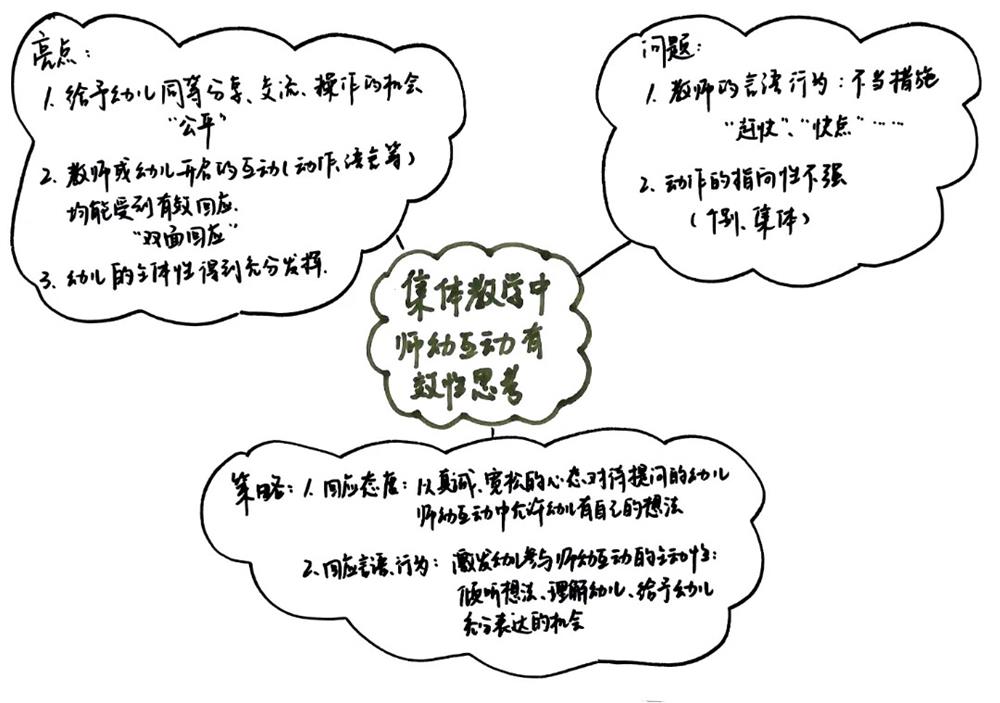 亮点:
1. 给予幼儿同等分享、交流、操作的机会
"公平"
2. 教师或幼儿开启的互动(动作、语言等)
均能受到有效回应.
"双面回应"
3. 幼儿的主体性得到充分发挥.
问题:
1. 教师的言语行为: 不当措施
"赶快"、"快点"……
2. 动作的指向性不强
(个别、集体)
集体教学中
师幼互动有
效性思考
策略: 1. 回应态度: 以真诚、宽松的心态对待提问的幼儿
师幼互动中允许幼儿有自己的想法
2. 回应言语、行为: 激发幼儿参与师幼互动的主动性:
倾听想法、理解幼儿、给予幼儿
充分表达的机会